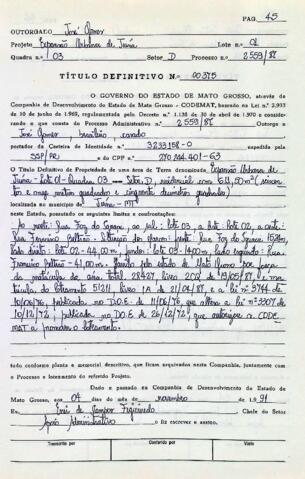 PAG. 45
OUTORGADO José Gomes
Projeto Expansão Urbana de Juína Lote n.o 01
Quadra n.o 03 Setor D Processo 2559/87
TÍTULO DEFINITIVO N.o 00375
O GOVERNO DO ESTADO DE MATO GROSSO, através da
Companhia de Desenvolvimento do Estado de Mato Grosso - CODEMAT, baseado na Lei n.o 2.933
de 10 de junho de 1.969, regulamentada pelo Decreto n.o 1.138 de 30 de abril de 1.970 e considerando
o que consta do Processo Administrativo n.o 2559/87 Outorga a
José Gomes brasileiro, casado
portador da Carteira de Identidade n.o 3233158-0 expedida em
SSP/PR e do CPF n.o 401-63
o Título Definitivo de Propriedade de uma área de Terra denominada Expansão Urbana de
Juína - Lote 01 - Quadra 03 - Setor D, residencial com
metros quadrados e decímetros quadrados)
localizada no município de Juína - MT
neste Estado, possuindo os seguintes limites e confrontações:
ao norte: Rua Foz do Iguaçu, ao sul: lote 03, a leste: lote 02, a oeste:
Rua Francisco Beltrão - frente: Rua Foz do Iguaçu
lado direito: lote 02 - 44,00 m, fundos: lote 03 - lado esquerdo: Rua
Francisco Beltrão - 41,00 m. pelo estado de Mato Grosso
da matrícula de área total 28427, livro 202, de 19/05/87, e
matrícula do loteamento 51211 livro 1A de 21/04/87, e a lei nº 3744 de
10/06/76, publicada no D.O.E de 11/06/76, que altera a lei nº 3307 de
10/12/72, publicada no D.O.E de 26/12/72, que autorizou a CODE
MAT a promover o loteamento.
tudo conforme planta e memorial descritivo, que ficam arquivados nesta Companhia, juntamente com
o Processo e loteamento do referido Projeto.
Dado e passado na Companhia de Desenvolvimento do Estado de
Mato Grosso, aos 04 dias do mês de novembro de 1.991
Eu, de Campos Figueiredo Chefe do Setor
Apoio Administrativo o fiz escrever e assino.
Transcrito por Conferido por Visto